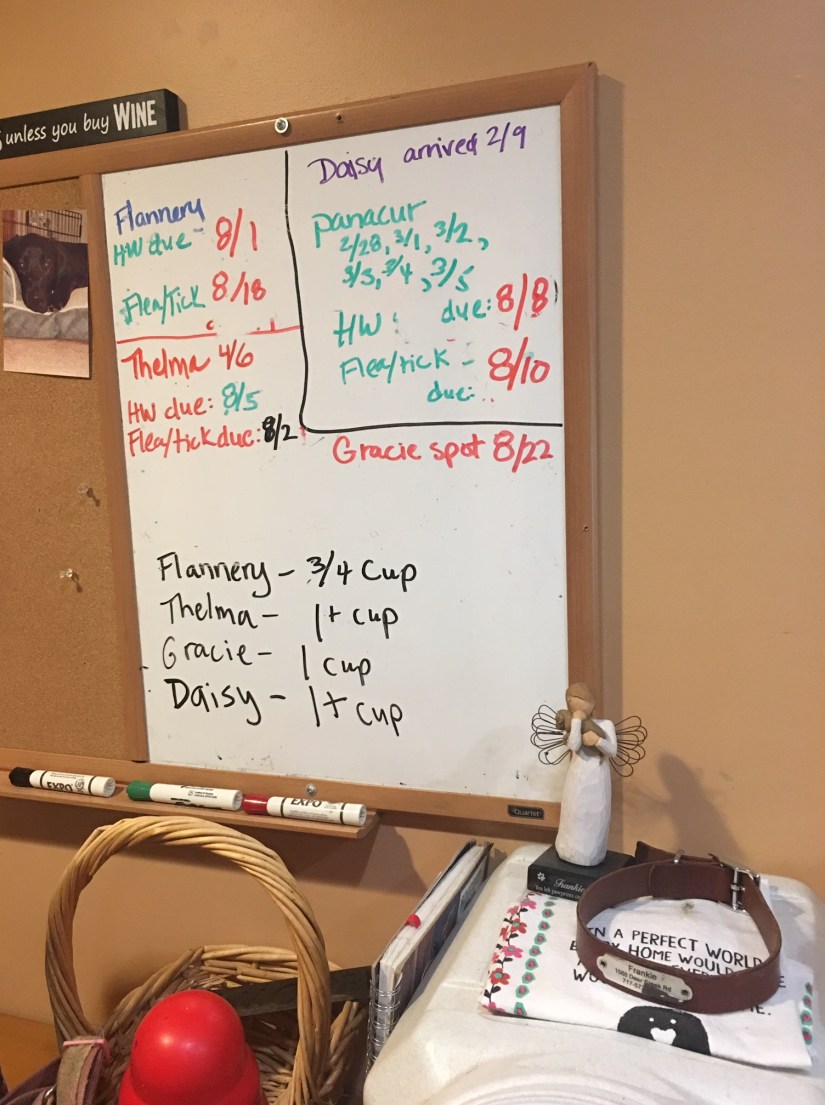 unless you buy WINE
Daisy arrived 2/9
Flannery
HW due - 8/1
Flea/Tick 8/18
Panacur
2/28, 3/1, 3/2,
3/3, 3/4, 3/5
HW: due: 8/8
Flea/tick - 8/10
due:
Thelma 4/6
HW due: 8/5
Flea/tick due: 8/2
Gracie spot 8/22
Flannery - 3/4 cup
Thelma - 1+ cup
Gracie - 1 cup
Daisy - 1+ cup
EXPO
EXPO
Quartet
Frankie
A PERFECT WORLD
HOME WOULD
Frankie